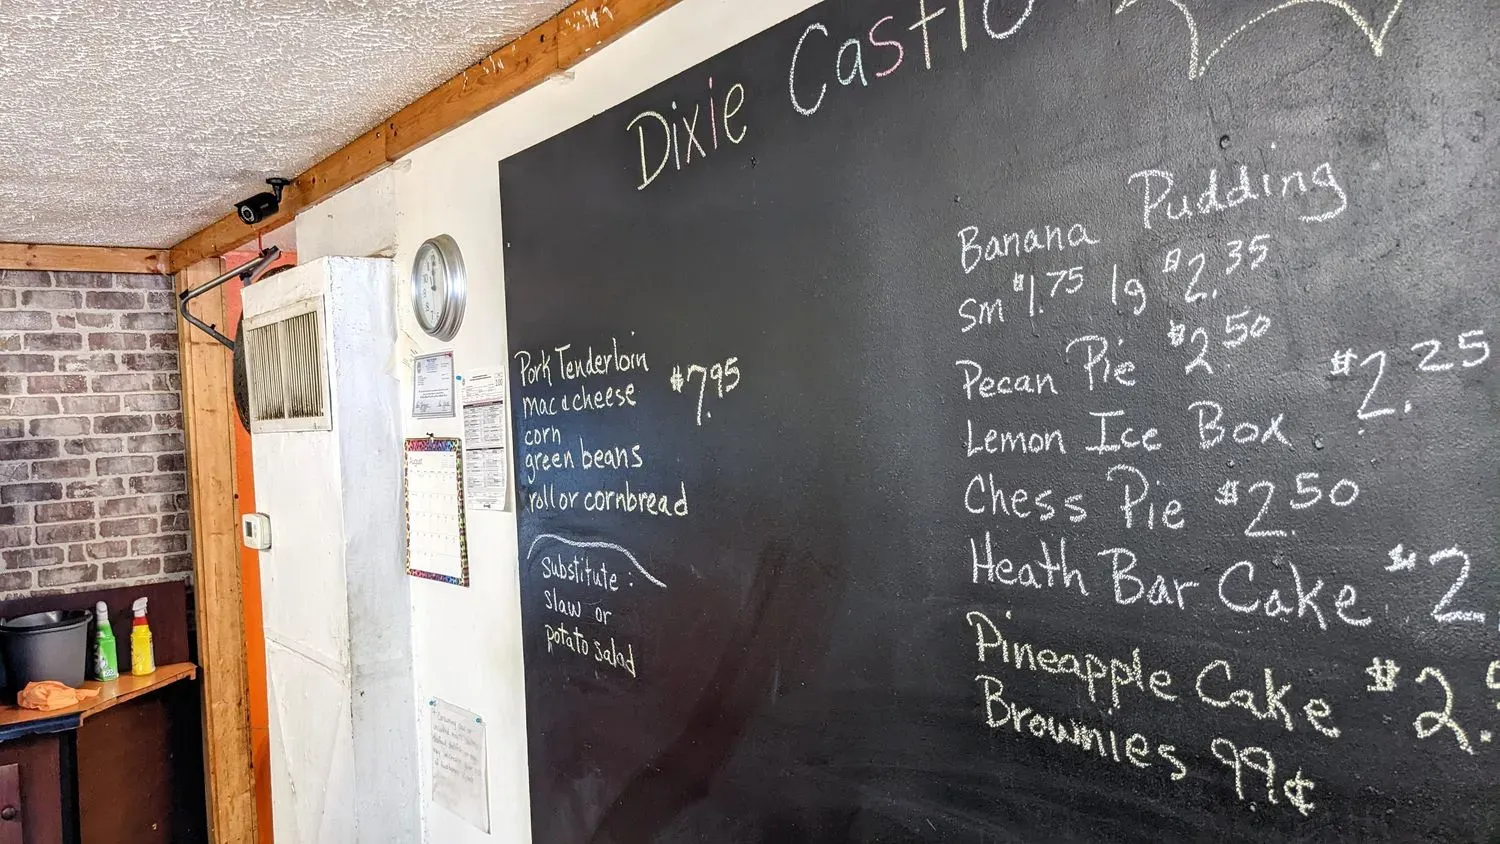 Dixie Castle
Pork Tenderloin $7.95
mac & cheese
corn
green beans
roll or cornbread
Substitute:
slaw or
potato salad
Banana Pudding
sm $1.75 lg $2.35
Pecan Pie $2.50
Lemon Ice Box $2.25
Chess Pie $2.50
Heath Bar Cake $2.
Pineapple Cake $2.5
Brownies 99¢
August